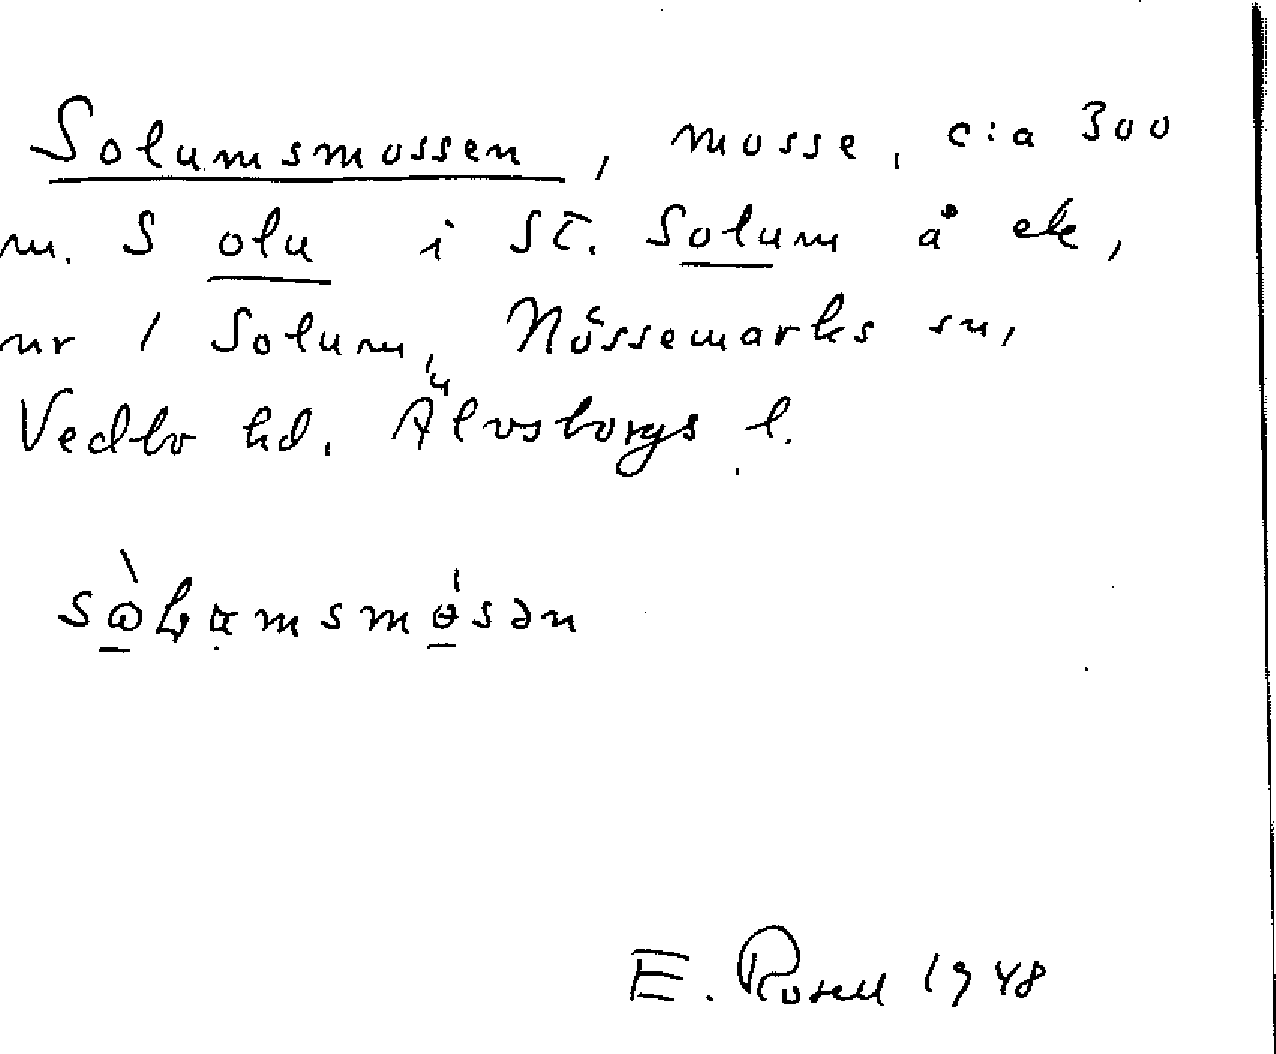 Solumsmossen, mosse, c:a 300
m. S olu i St. Solum å ek,
nr 1 Solum, Nössemarks sn,
Vedbo hd. Älvsborgs l.
E. Rosell 1948